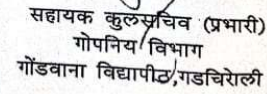 सहायक कुलसचिव (प्रभारी)
गोपनिय विभाग
गोंडवाना विद्यापीठ,गडचिरोली